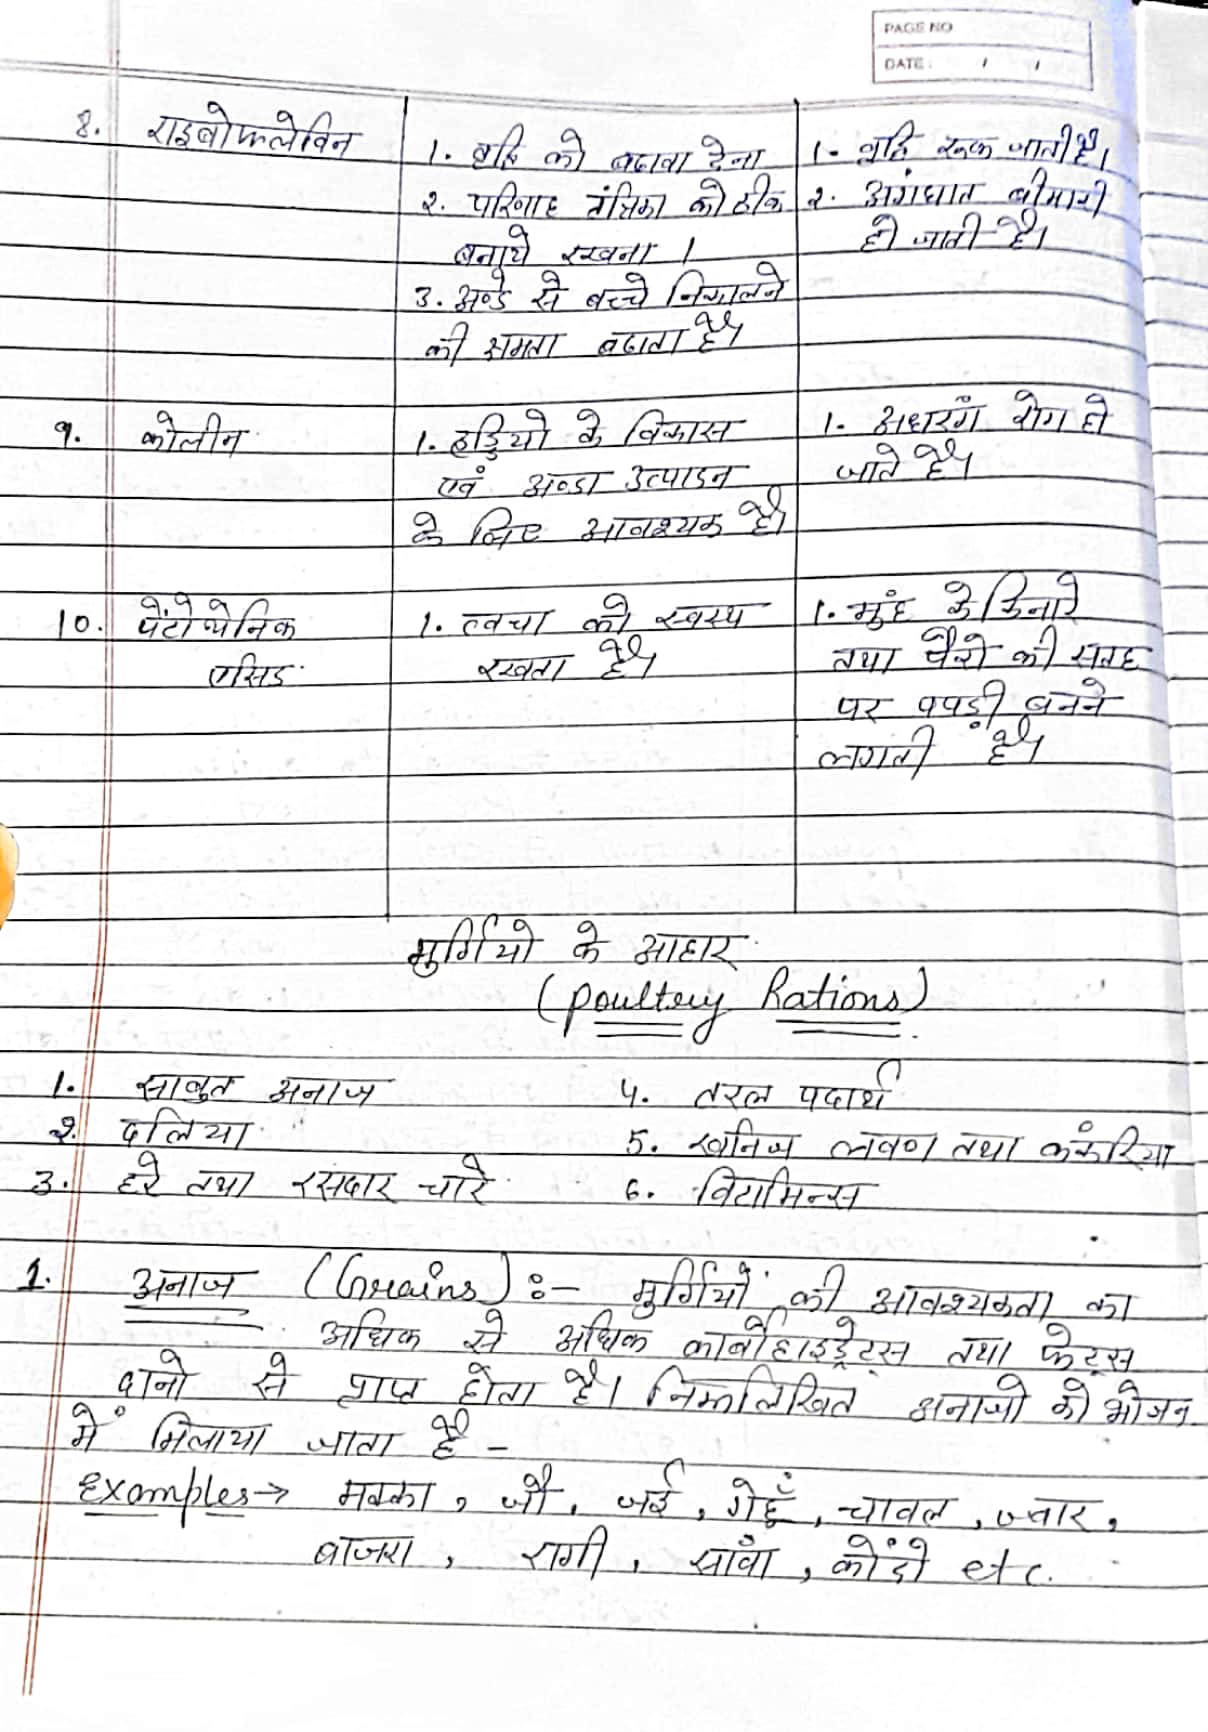 PAGE NO
DATE: / /
8. राइबोफ्लेविन
1. वृद्धि को बढावा देना
2. परिणाह तंत्रिका को ठीक
बनाये रखना।
3. अण्डे से बच्चे निकालने
की क्षमता बढाता है।
1. वृद्धि रूक जाती है।
2. अगंघात बीमारी
हो जाती है।
9. कोलीन
1. हड्डियो के विकास
एवं अण्डा उत्पादन
के लिए आवश्यक है।
1. अधरंग रोग हो
जाते है।
10. पेंटोथेनिक
एसिड
1. त्वचा को स्वस्थ
रखता है।
1. मुंह के किनारे
तथा पैरो की सतह
पर पपड़ी बनने
लगती है।
मुर्गियो के आहार
(Poultery Rations)
1. साबुत अनाज
2. दलिया
3. हरे तथा रसदार चारे
4. तरल पदार्थ
5. खनिज लवण तथा कंकरिया
6. विटामिन्स
1. अनाज (Grains) :- मुर्गियों की आवश्यकता का
अधिक से अधिक कार्बोहाइड्रेट्स तथा फेट्स
दानो से प्राप्त होता है। निम्नलिखित अनाजो को भोजन
में मिलाया जाता है -
Examples→ मक्का, जौ, जई, गेहूँ, चावल, ज्वार,
बाजरा, रागी, सांवा, कोंदो etc.